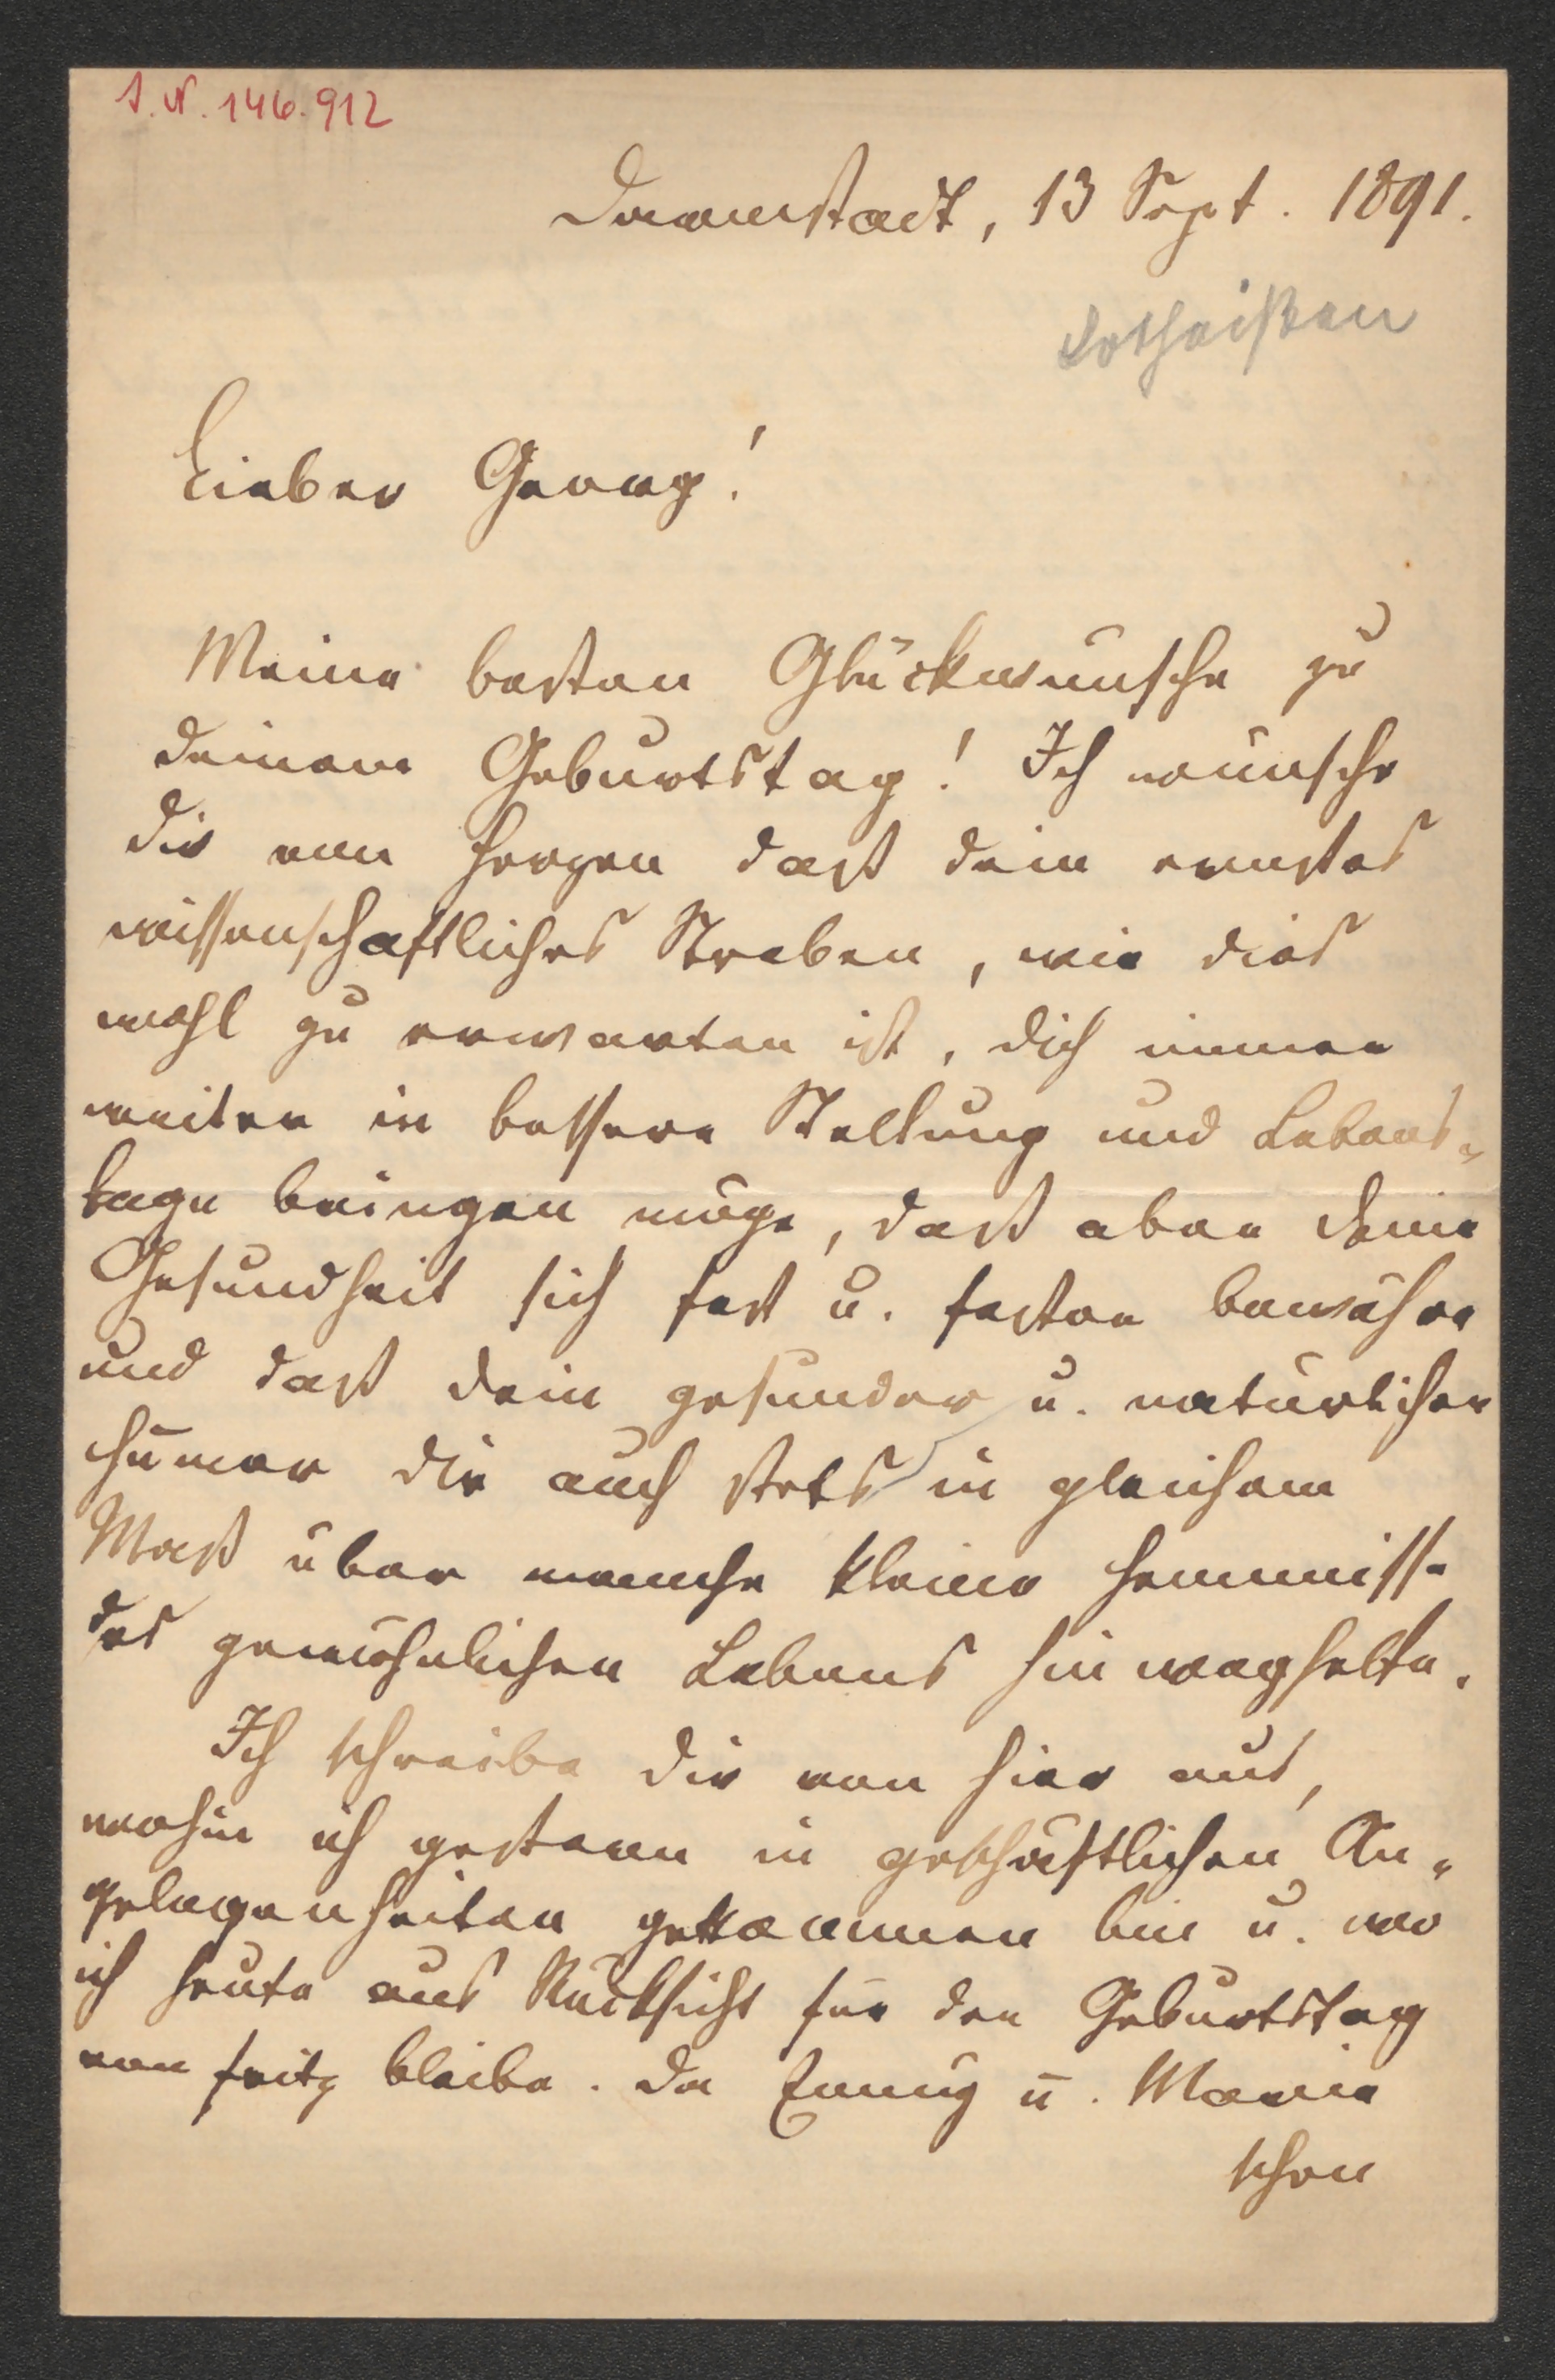 I.N. 146.912
Darmstadt, 13 Sept. 1891.
Lotheißen
Lieber Georg!
Meine besten Glückwünsche zu
deinem Geburtstag! Ich wünsche
dir von Herzen daß dein ernstes
wissenschaftliches Streben, wie dies
wohl zu erwarten ist, dich immer
weiter in bessere Stellung und Lebens-
lage bringen möge, daß aber deine
Gesundheit sich fest u. fester bewähre
und daß dein gesunder u. natürlicher
Humor dir auch stets in gleichem
Maß über manche kleine Hemmniss
des gewöhnlichen Lebens hinweghelfe.
Ich schreibe dir von hier aus,
wohin ich gestern in geschäftlichen An-
gelegenheiten gekommen bin u. wo
ich heute aus Rücksicht für den Geburtstag
von Fritz bleibe. Da u. Marie
schon